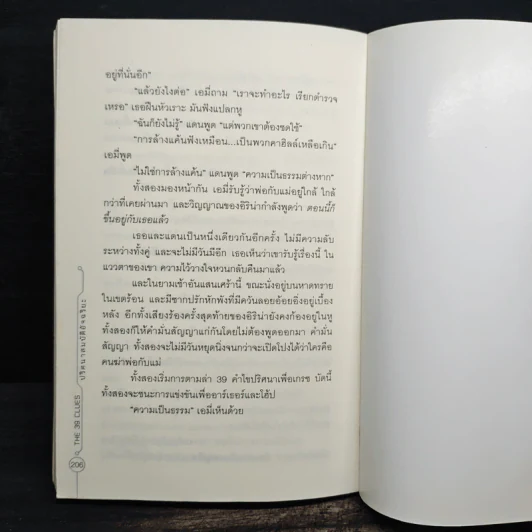 อยู่ที่นั่นอีก"
"แล้วยังไงต่อ" เอมี่ถาม "เราจะทำอะไร เรียกตำรวจ
เหรอ" เธอฝืนหัวเราะ มันฟังแปลกหู
"ฉันก็ยังไม่รู้" แดนพูด "แต่พวกเขาต้องชดใช้"
"การล้างแค้นฟังเหมือน...เป็นพวกคาฮิลล์เหลือเกิน"
เอมี่พูด
"ไม่ใช่การล้างแค้น" แดนพูด "ความเป็นธรรมต่างหาก"
ทั้งสองมองหน้ากัน เอมี่รับรู้ว่าพ่อกับแม่อยู่ใกล้ ใกล้
กว่าที่เคยผ่านมา และวิญญาณของอิริน่ากำลังพูดว่า ตอนนี้ก็
ขึ้นอยู่กับเธอแล้ว
เธอและแดนเป็นหนึ่งเดียวกันอีกครั้ง ไม่มีความลับ
ระหว่างทั้งคู่ และจะไม่มีวันมีอีก เธอเห็นว่าเขารับรู้เรื่องนี้ ใน
แววตาของเขา ความไว้วางใจหวนกลับคืนมาแล้ว
และในยามเช้าอันแสนเศร้านี้ ขณะนั่งอยู่บนหาดทราย
ในเขตร้อน และมีซากปรักหักพังที่มีควันลอยอ้อยอิ่งอยู่เบื้อง
หลัง อีกทั้งเสียงร้องครั้งสุดท้ายของอิริน่ายังคงก้องอยู่ในหู
ทั้งสองก็ให้คำมั่นสัญญาแก่กันโดยไม่ต้องพูดออกมา คำมั่น
สัญญา ทั้งสองจะไม่มีวันหยุดนิ่งจนกว่าจะเปิดโปงได้ว่าใครคือ
คนฆ่าพ่อกับแม่
ทั้งสองเริ่มการตามล่า 39 คำไขปริศนาเพื่อเกรซ บัดนี้
ทั้งสองจะชนะการแข่งขันเพื่ออาร์เธอร์และโฮ้ป
"ความเป็นธรรม" เอมี่เห็นด้วย
THE 39 CLUES ปริศนาสมบัติอัจฉริยะ
206